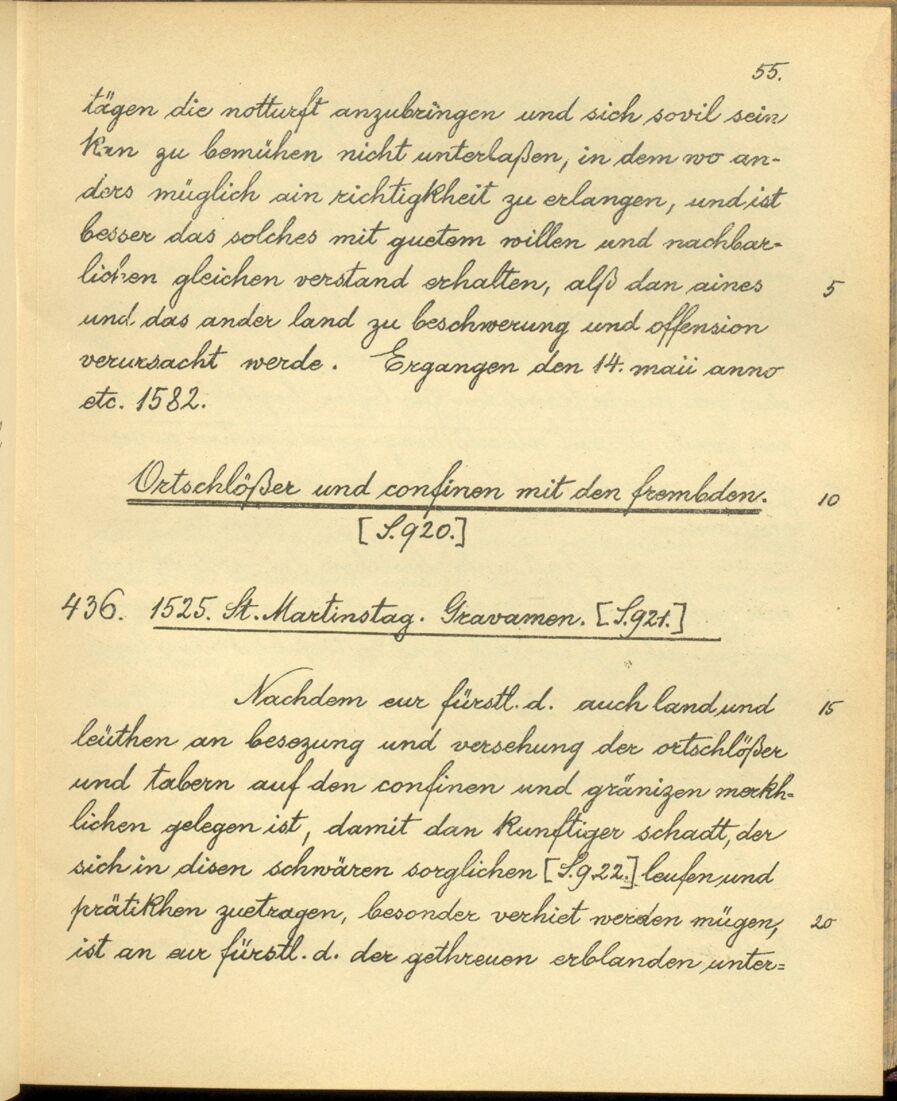 55.
tägen die notturft anzubringen und sich sovil sein
kan zu bemühen nicht unterlaßen, in dem wo an-
ders müglich ain richtigkheit zu erlangen, und ist
besser das solches mit guetem willen und nachbar-
lichen gleichen verstand erhalten, alß dan aines 5
und das ander land zu beschwerung und offension
verursacht werde. Ergangen den 14. maii anno
etc. 1582.
Ortschlößer und confinen mit den frembden. 10
[S.920.]
436. 1525. St. Martinstag. Gravamen. [S.921.]
Nachdem eur fürstl. d. auch land und 15
leüthen an besezung und versehung der ortschlößer
und tabern auf den confinen und gränizen merkh=
lichen gelegen ist, damit dan kunftiger schadt, der
sich in disen schwären sorglichen [S.922.] leufen und
prätikhen zuetragen, besonder verhiet werden mügen, 20
ist an eur fürstl. d. der gethreuen erblanden unter=